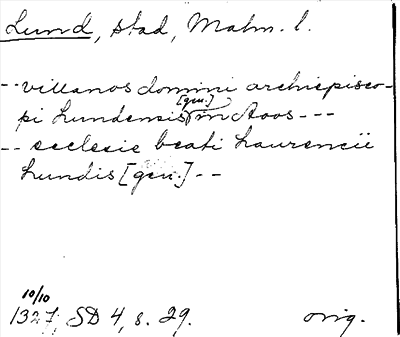 Lund, stad, Malm. l.
-- villanos domini archiepisco-
[gen.]
pi Lundensis in Aoos ---
-- ecclesie beati Laurencii
Lundis [gen.] --
10/10
1327, SD 4, s. 29. orig.